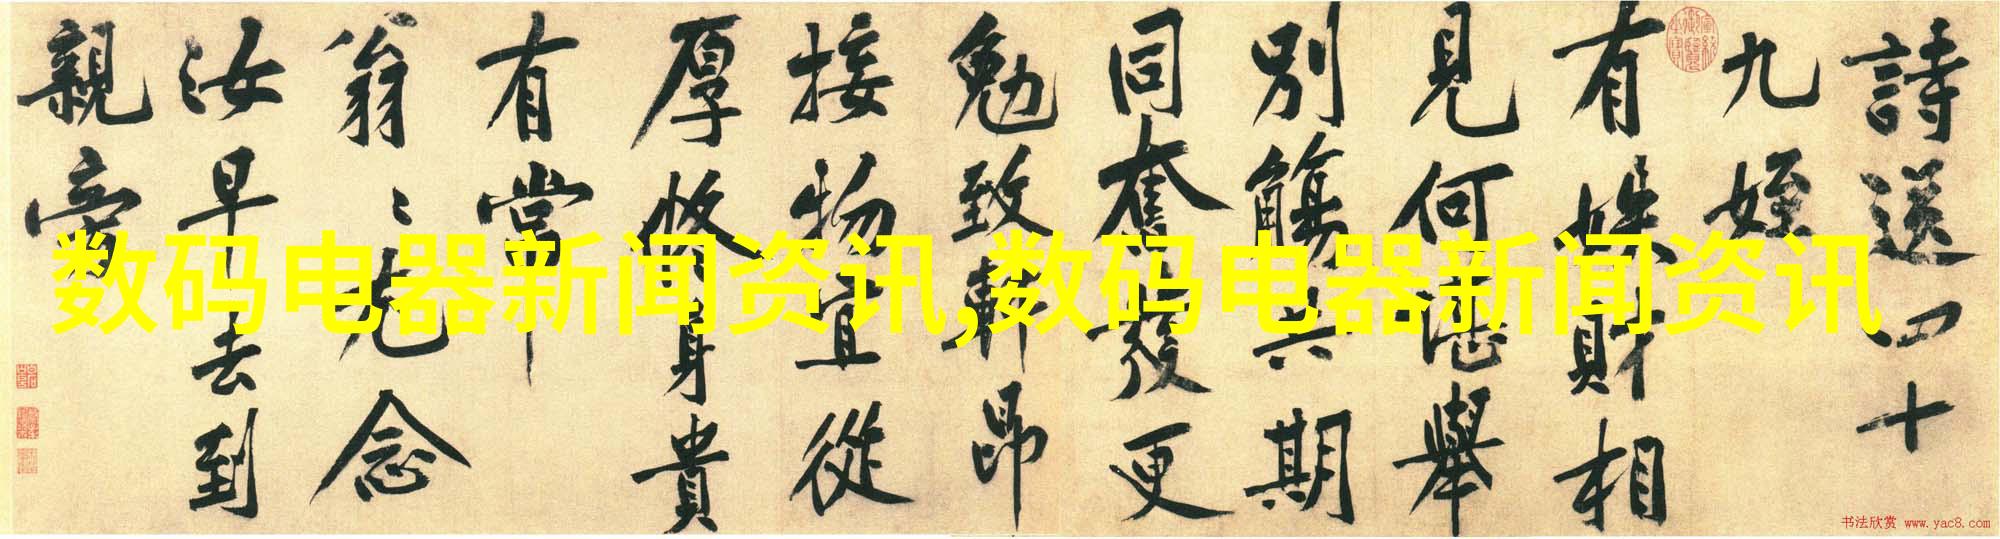 詩送四十
九姪
有財相
見何堪舉
別觴六期
同奮發更
勉致軒昂
接物宜從
厚脩身貴
有常
翁〻尤念
汝早去到
親旁
数码电器新闻资讯,数码电器新闻资讯
书法欣赏 www.yac8.com